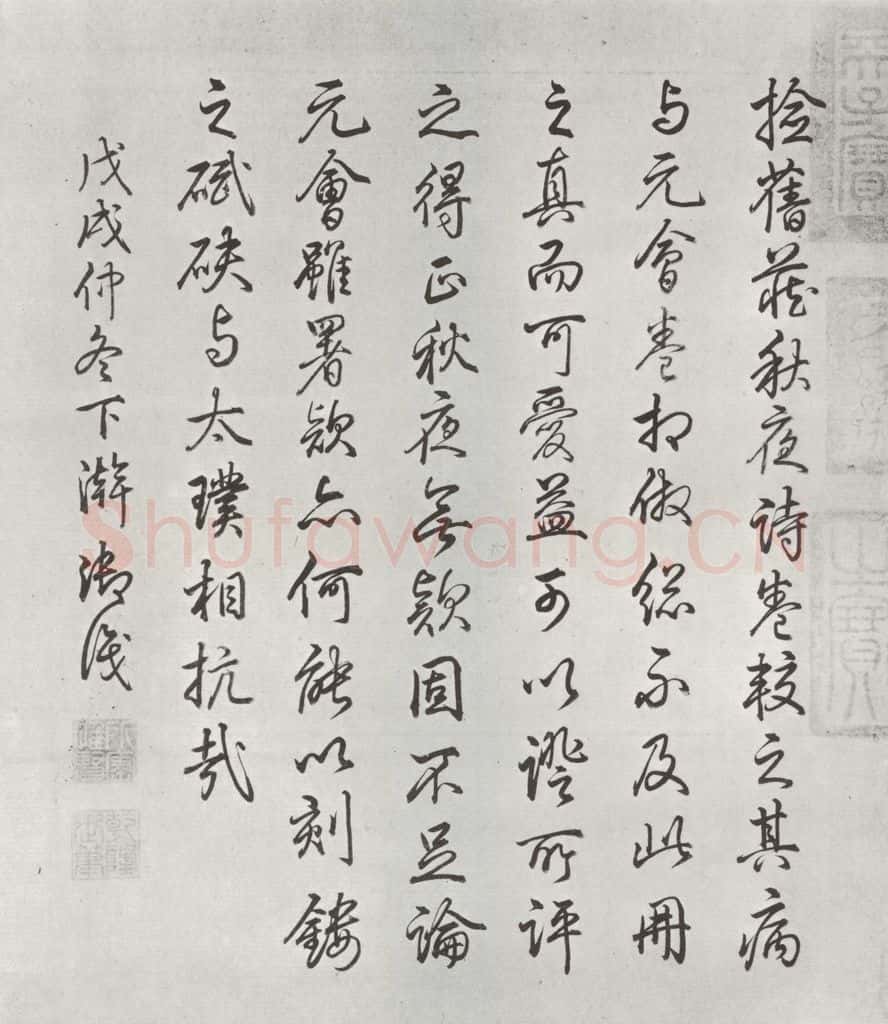 撿舊藏秋夜詩卷較之其病
与元會卷相倣總不及此冊
之真而可愛益可以證所評
之得正秋夜無欵固不足論
元會雖署欵亦何能以刻鏤
之碔砆与太璞相抗哉
戊戌仲冬下澣御識
Shufawang.CN